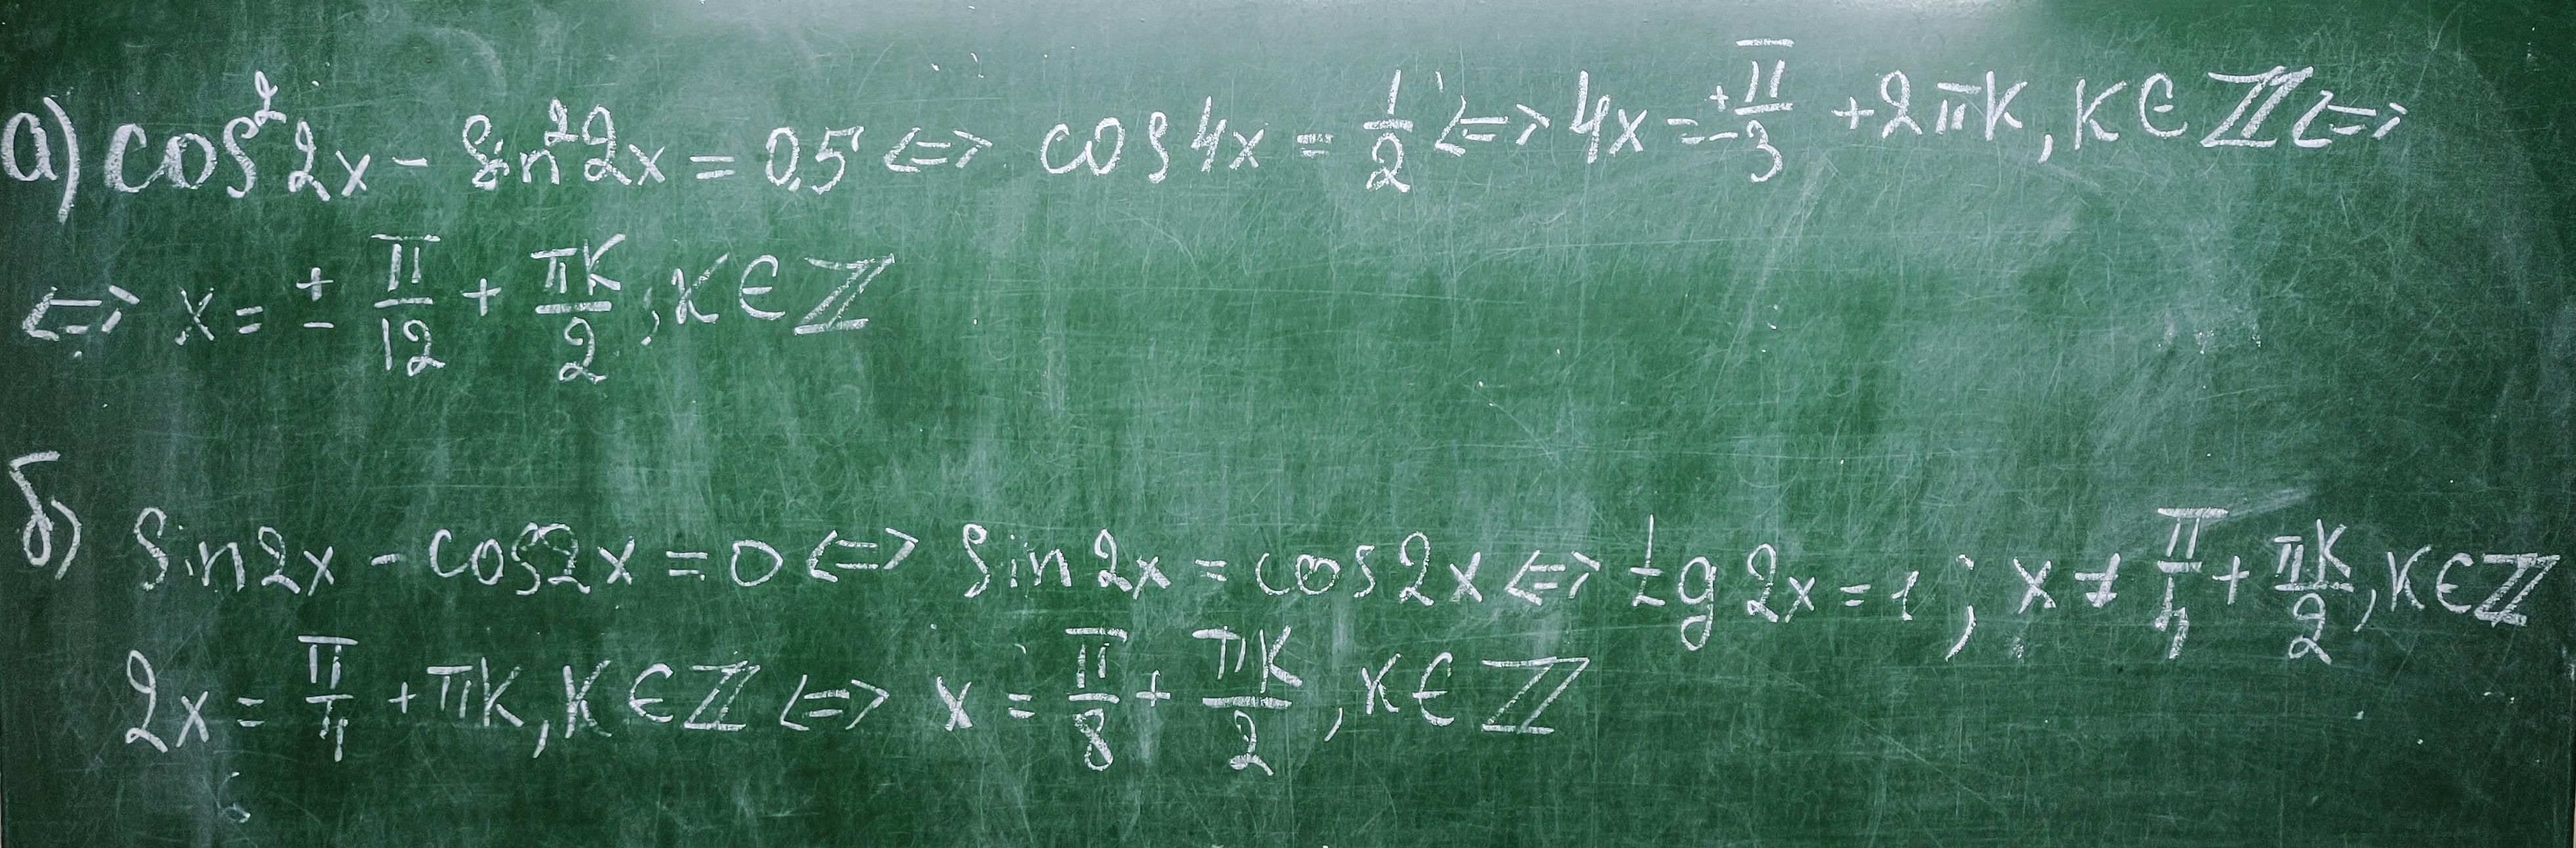 а) cos²2x - sin²2x = 0,5 <=> cos4x = 1/2 <=> 4x = ± π/3 + 2πk, k ∈ ℤ <=>
<=> x = ± π/12 + πk/2, k ∈ ℤ
б) sin2x - cos2x = 0 <=> sin2x = cos2x <=> tg2x = 1; x ≠ π/4 + πk/2, k ∈ ℤ
2x = π/4 + πk, k ∈ ℤ <=> x = π/8 + πk/2, k ∈ ℤ